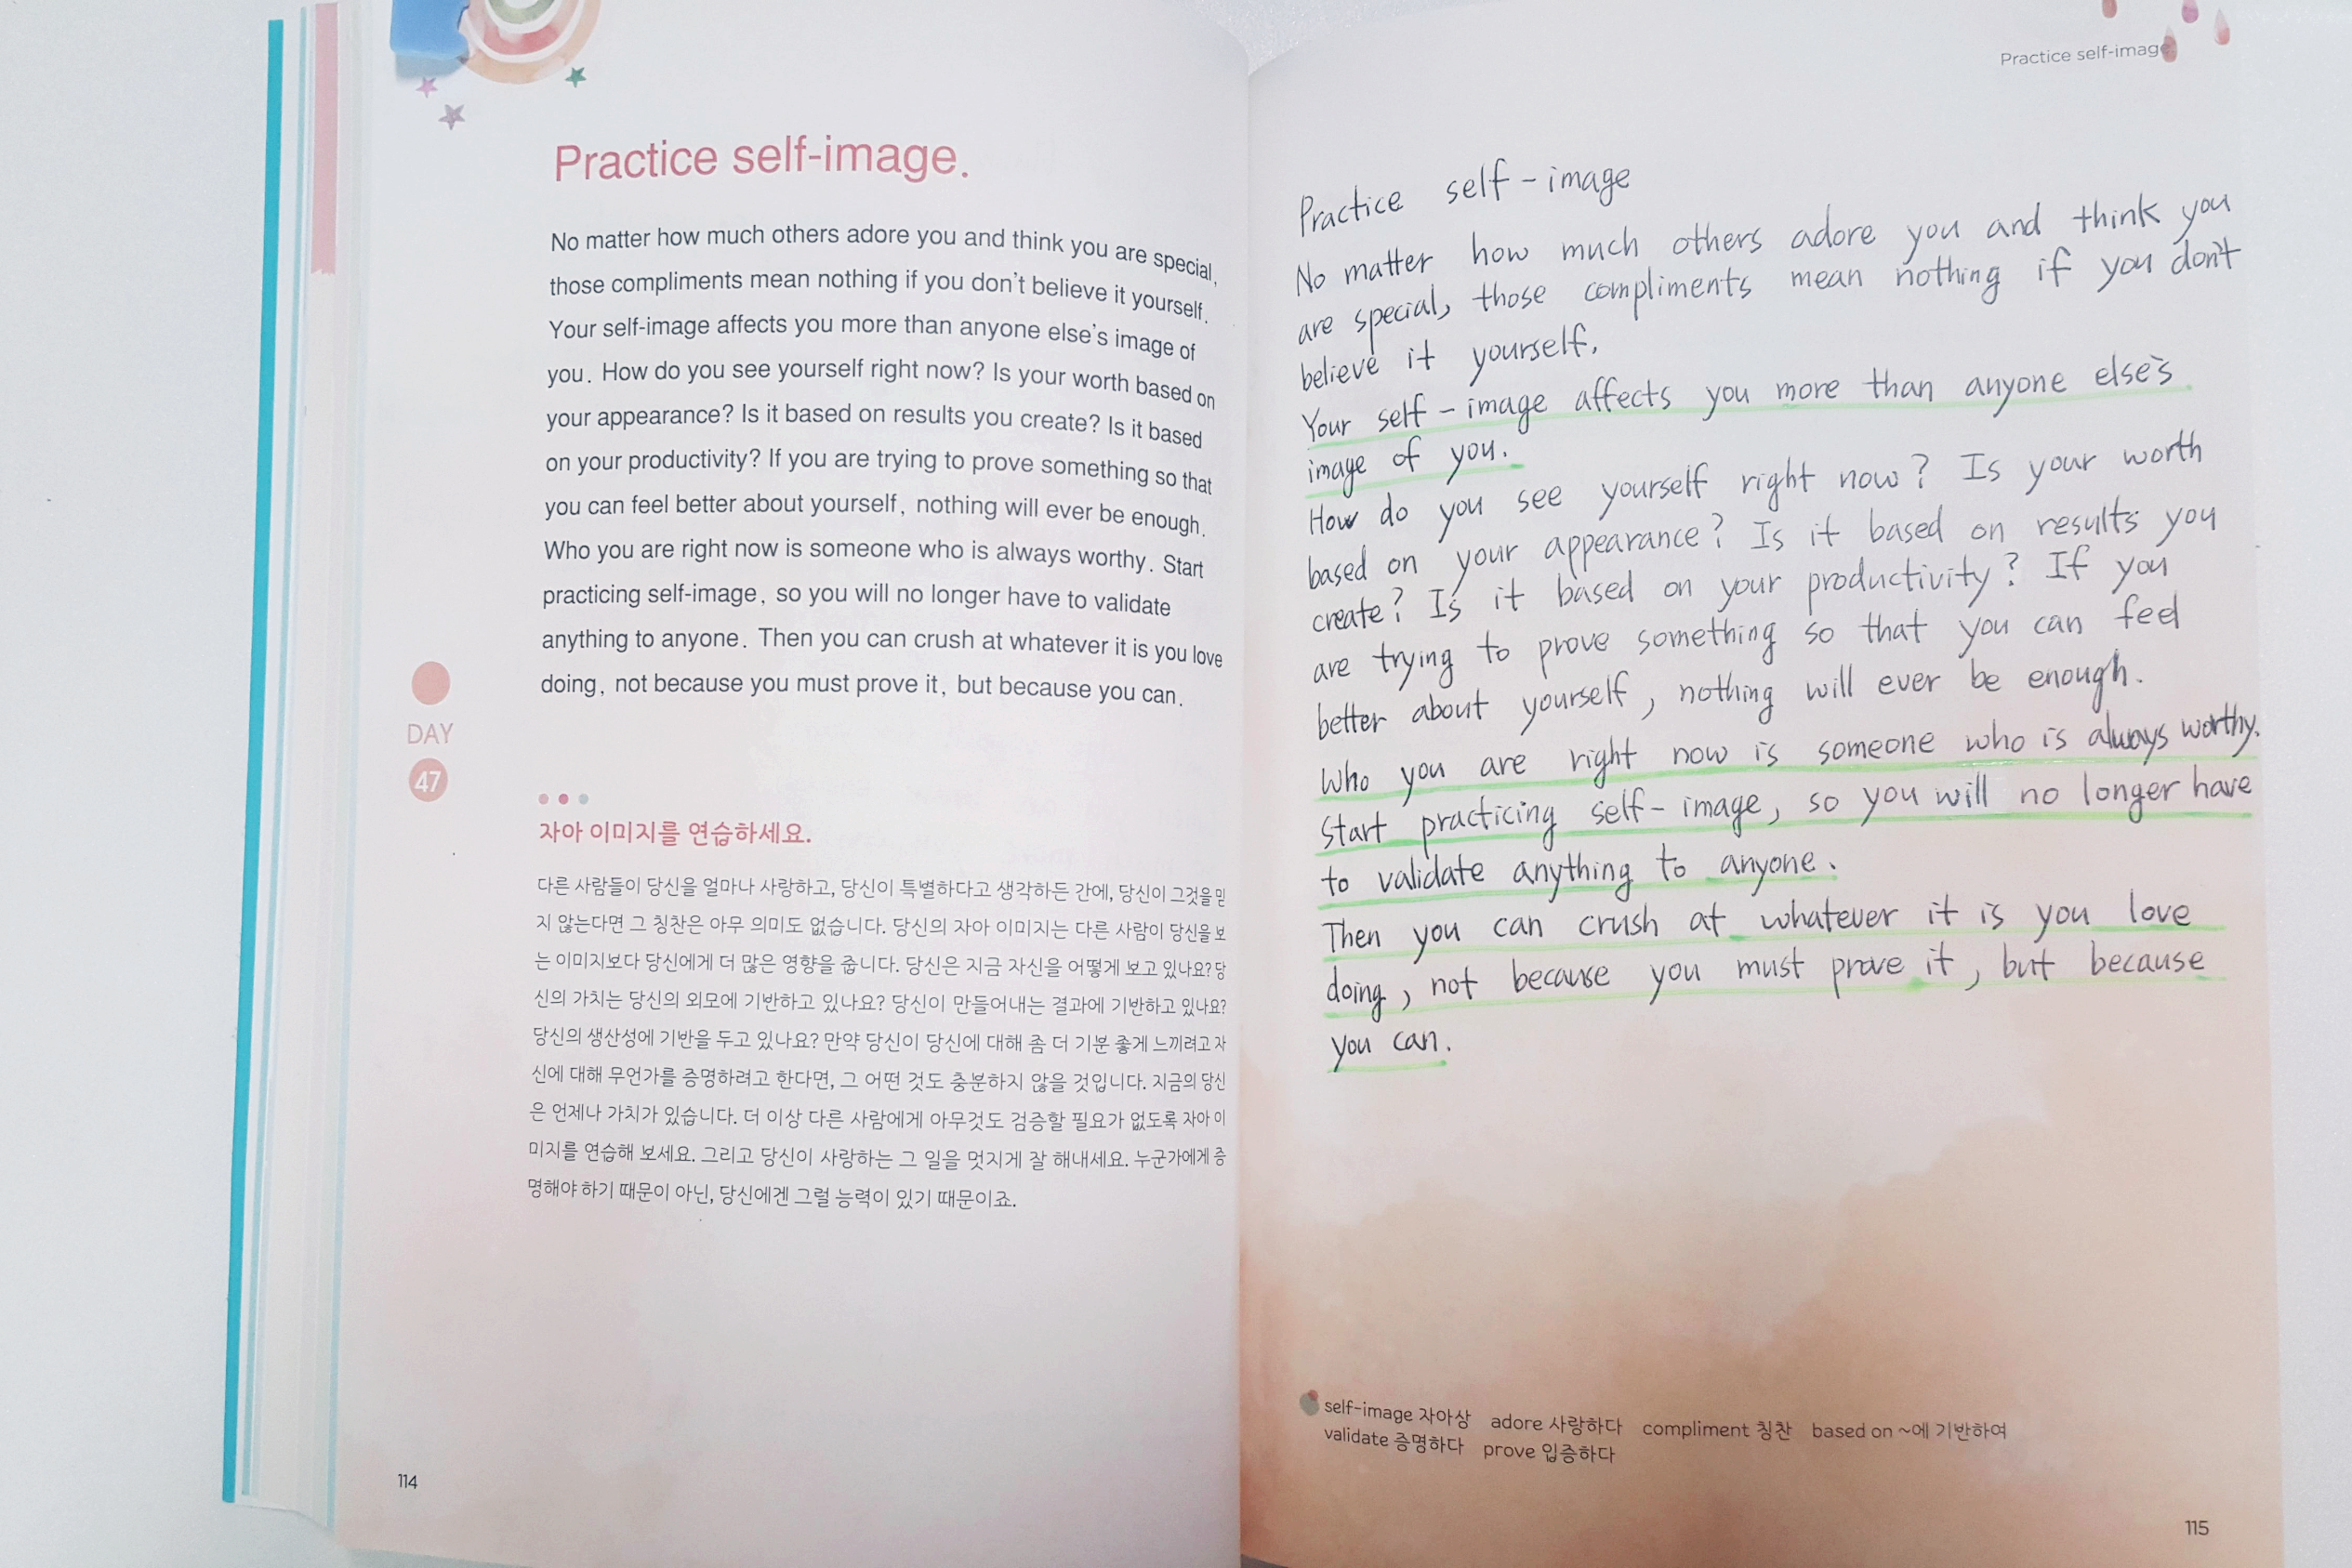 Practice self-image.
No matter how much others adore you and think you are special,
those compliments mean nothing if you don't believe it yourself.
Your self-image affects you more than anyone else's image of
you. How do you see yourself right now? Is your worth based on
your appearance? Is it based on results you create? Is it based
on your productivity? If you are trying to prove something so that
you can feel better about yourself, nothing will ever be enough.
Who you are right now is someone who is always worthy. Start
practicing self-image, so you will no longer have to validate
anything to anyone. Then you can crush at whatever it is you love
doing, not because you must prove it, but because you can.
DAY
47
자아 이미지를 연습하세요.
다른 사람들이 당신을 얼마나 사랑하고, 당신이 특별하다고 생각하든 간에, 당신이 그것을 믿
지 않는다면 그 칭찬은 아무 의미도 없습니다. 당신의 자아 이미지는 다른 사람이 당신을 보
는 이미지보다 당신에게 더 많은 영향을 줍니다. 당신은 지금 자신을 어떻게 보고 있나요? 당
신의 가치는 당신의 외모에 기반하고 있나요? 당신이 만들어내는 결과에 기반하고 있나요?
당신의 생산성에 기반을 두고 있나요? 만약 당신이 당신에 대해 좀 더 기분 좋게 느끼려고 자
신에 대해 무언가를 증명하려고 한다면, 그 어떤 것도 충분하지 않을 것입니다. 지금의 당신
은 언제나 가치가 있습니다. 더 이상 다른 사람에게 아무것도 검증할 필요가 없도록 자아 이
미지를 연습해 보세요. 그리고 당신이 사랑하는 그 일을 멋지게 잘 해내세요. 누군가에게 증
명해야 하기 때문이 아닌, 당신에겐 그럴 능력이 있기 때문이죠.
114
Practice self-image
Practice self-image
No matter how much others adore you and think you
are special, those compliments mean nothing if you don't
believe it yourself.
Your self-image affects you more than anyone else's
image of you.
How do you see yourself right now? Is your worth
based on your appearance? Is it based on results you
create? Is it based on your productivity? If you
are trying to prove something so that you can feel
better about yourself, nothing will ever be enough.
Who you are right now is someone who is always worthy.
Start practicing self-image, so you will no longer have
to validate anything to anyone.
Then you can crush at whatever it is you love
doing, not because you must prove it, but because
you can.
self-image 자아상 adore 사랑하다 compliment 칭찬 based on ~에 기반하여
validate 증명하다 prove 입증하다
115